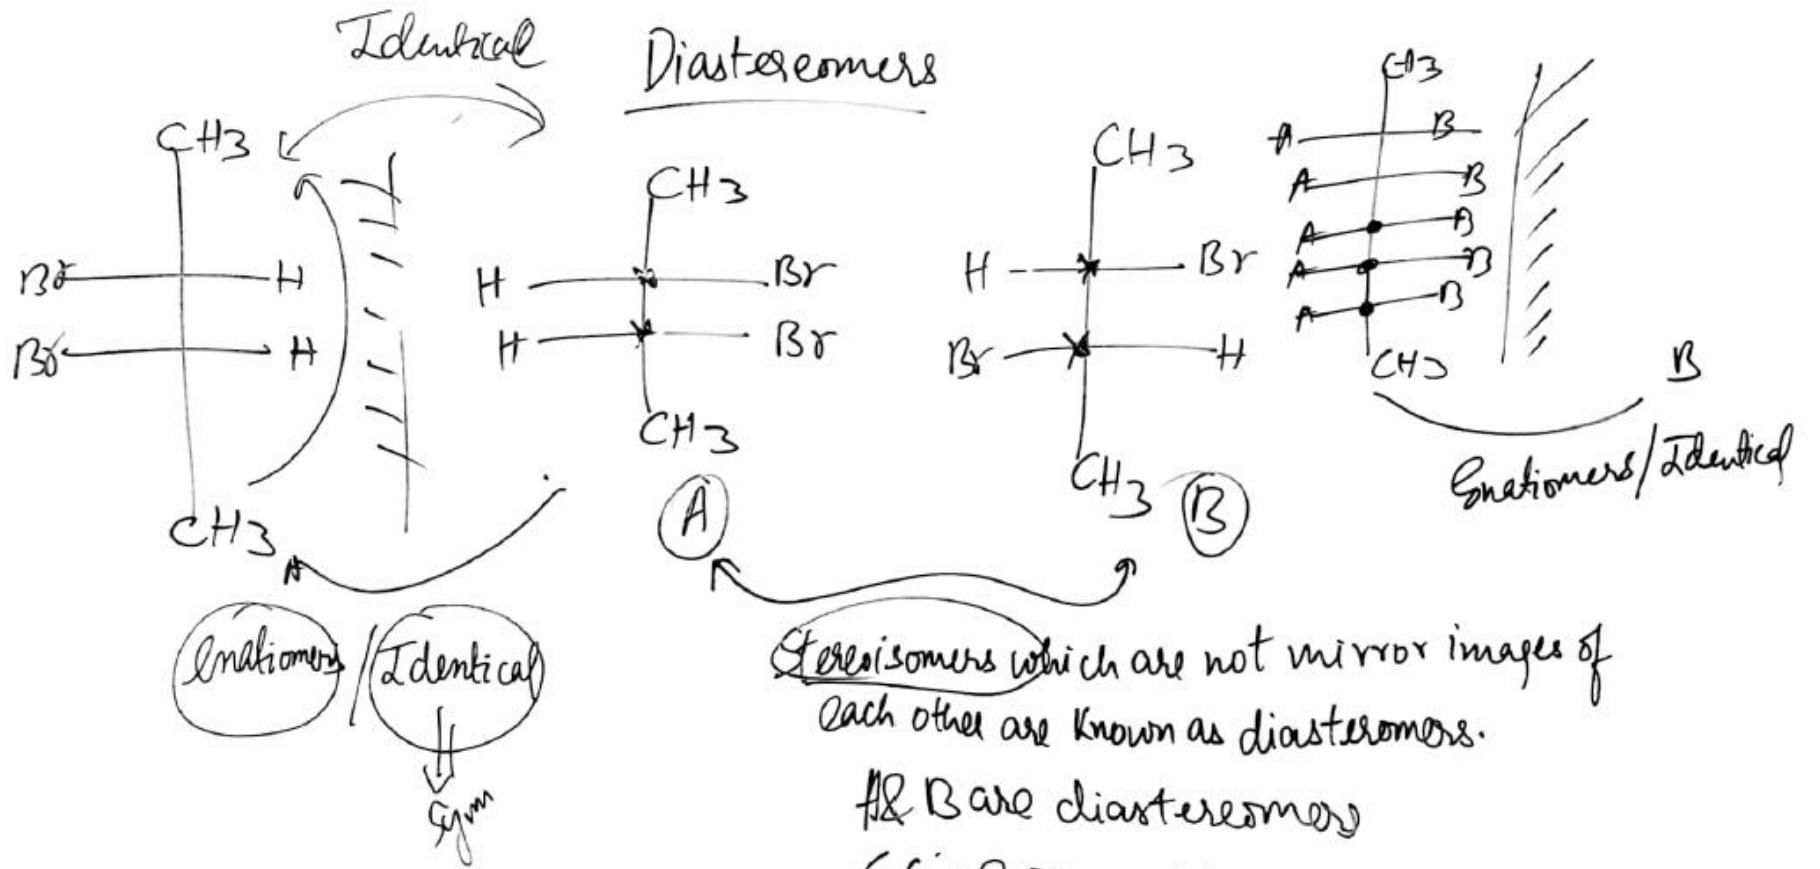 Identical
Diastereomers
CH3
Br H
Br H
CH3
CH3
H Br
H Br
CH3
A
CH3
H Br
Br H
CH3
B
CH3
A B
A B
A B
A B
A B
CH3
B
Enatiomers/Identical
Enatiomers / Identical
Sym
Stereoisomers which are not mirror images of
each other are known as diasteromers.
A& B are diastereomers